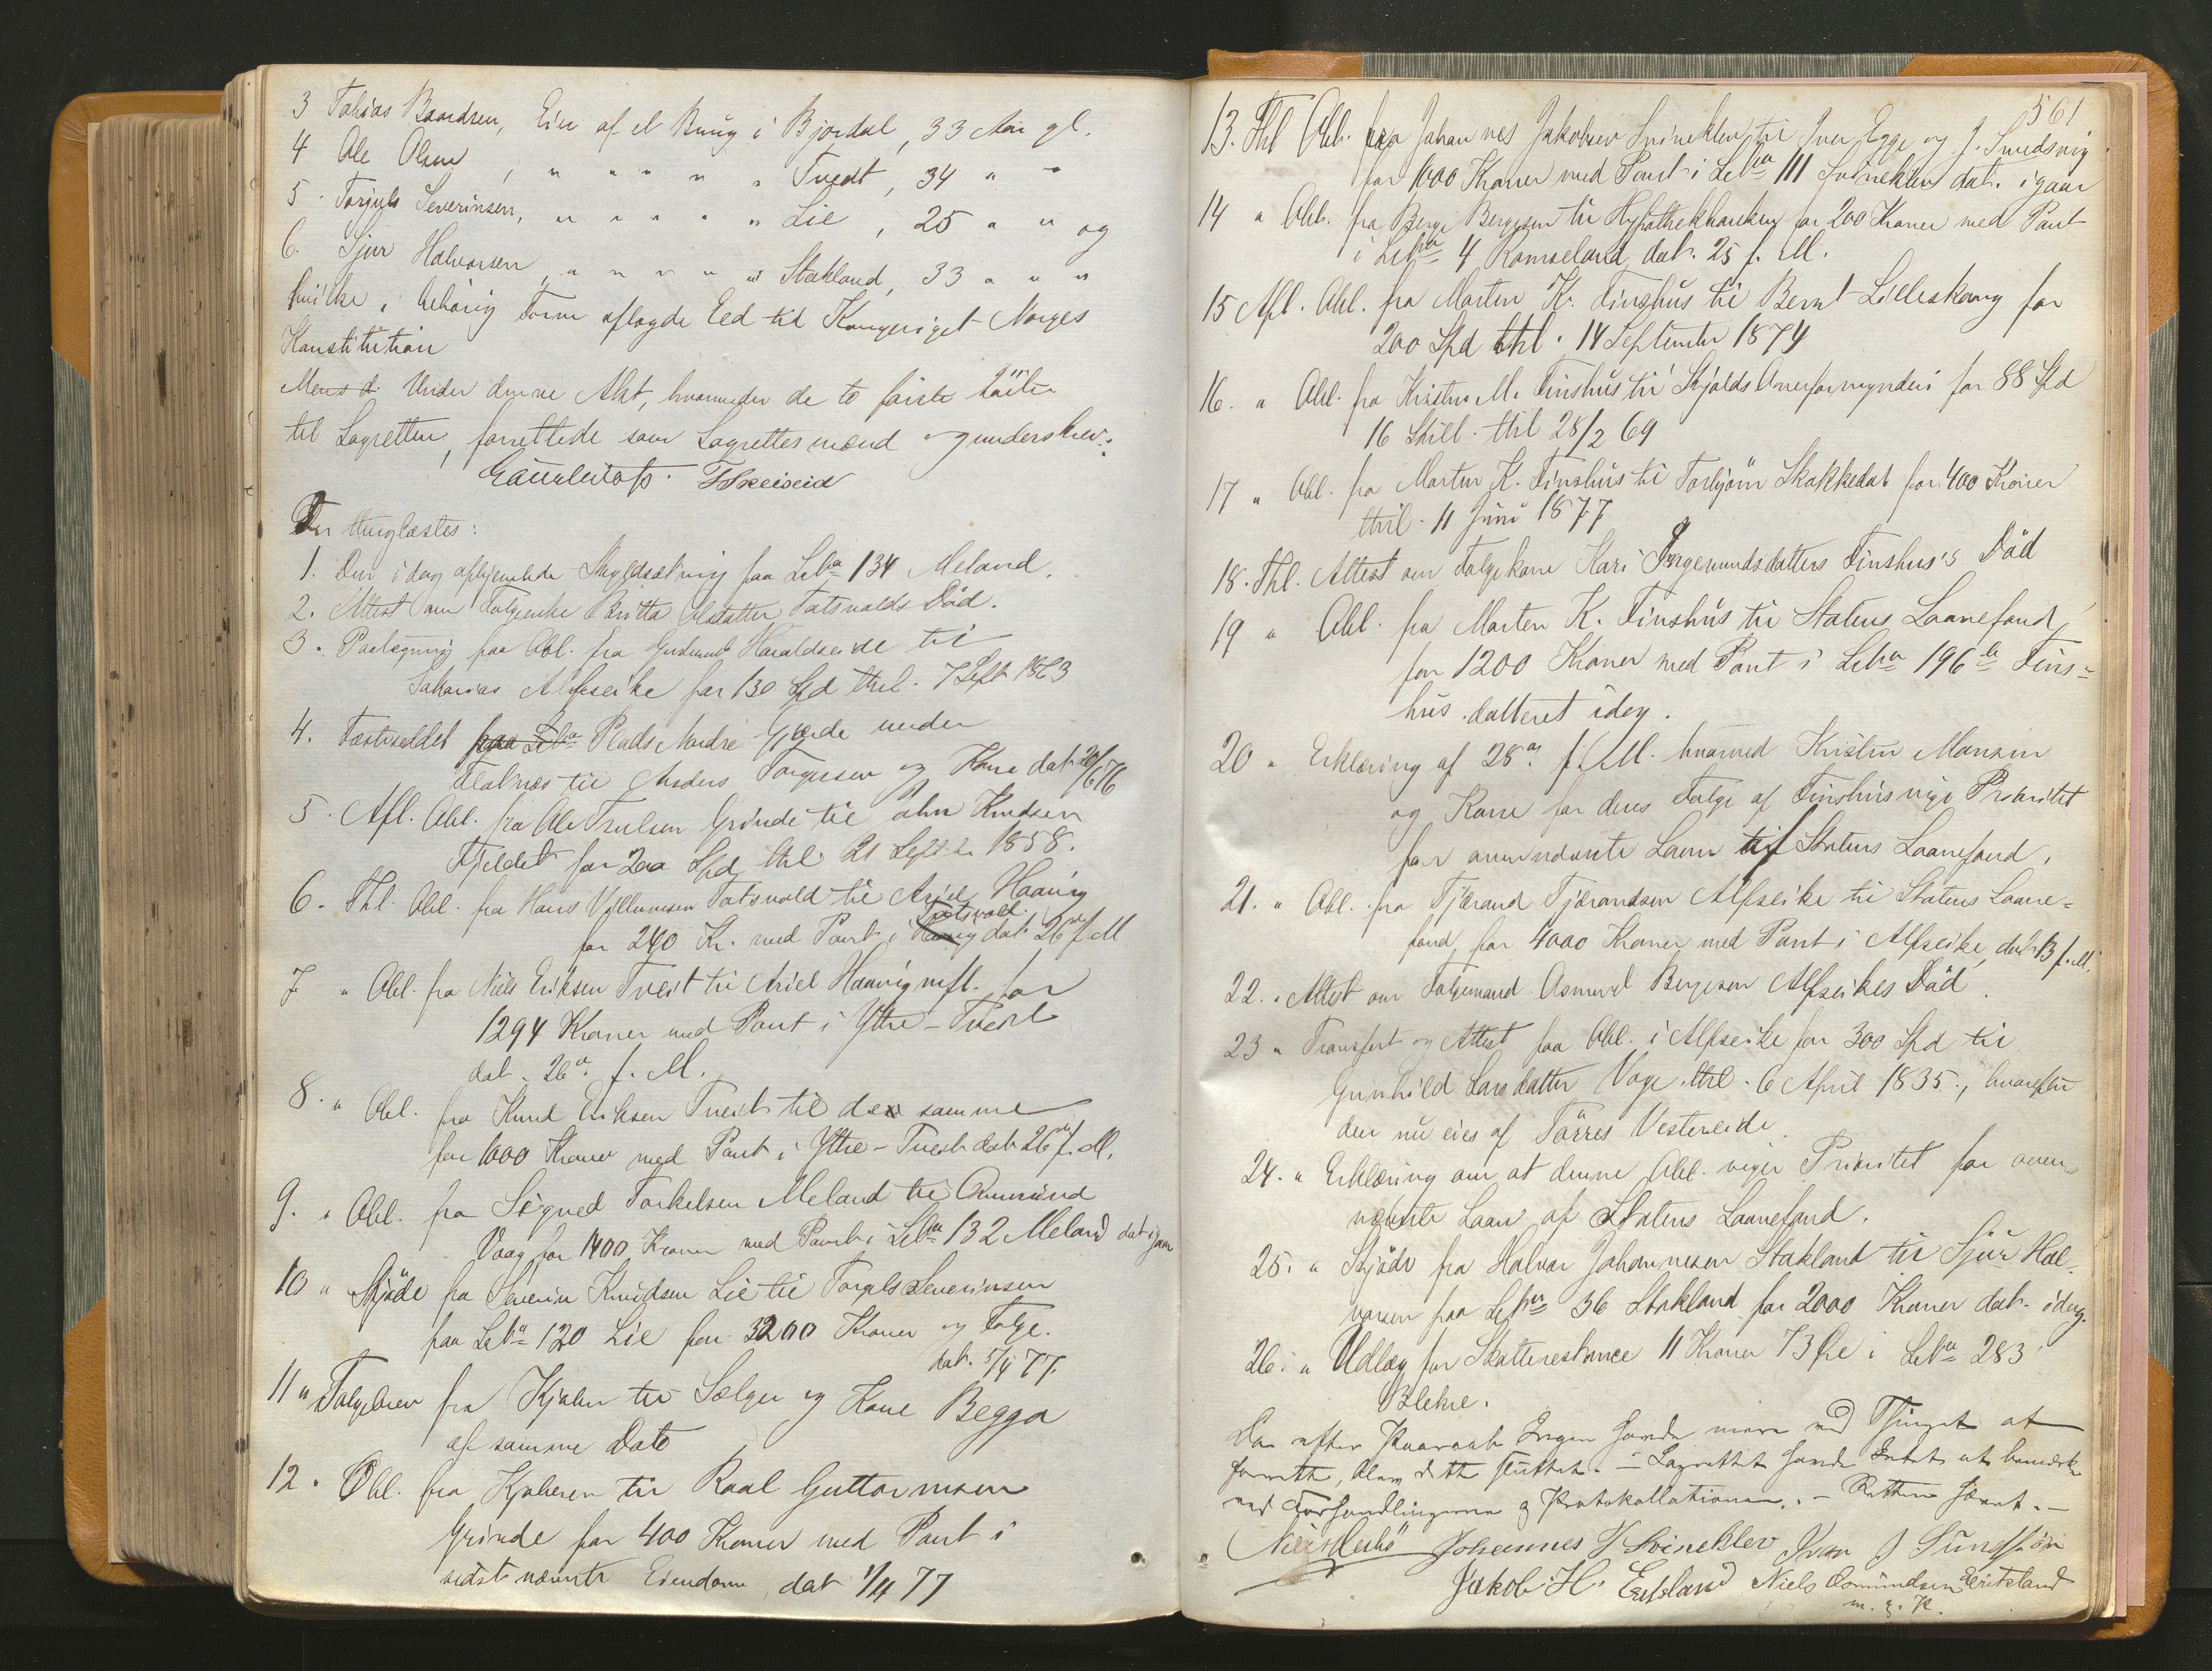 3 Tobias Baardsen, Eier af et Brug i Bjordal, 33 Aar gl.
4 Ole Olsen, " " " " " Tvedt, 34 " "
5 Torgils Severinsen, " " " " " Lie, 25 " " og
6. Sjur Halvorsen, " " " " " Stakland, 33 " " "
hvilke i behørig Form aflagde Ed til Kongeriget Norges
Konstitution
Under denne Akt, hvorunder de to første
til Lagretten, forrettede som Lagrettesmænd og underskrev:
Der thinglæstes:
1. Den i dag afhjemlede Skyldsætning paa Lebno 134 Meland.
2. Attest om Britta Olsdatter Fatsvolds Død.
3. Paategning paa Obl. fra Gudmund Haraldseide til
Sakarias Alfseike for 130 Spd thl. 7 Sept 1863
4. Fæsteseddel paa Lebno Plads Nordre Gjærde under
til Anders Torgersen og Kone dat. 20/6 76
5. Afl. Obl. fra Ole Trulsen Grinde til John Knudsen
Fjeldet for 200 Spd thl. 21 Septbr 1858.
6. Thl. Obl. fra Hans Villumsen Fatsvold til Ariel Haavig
Fatsvold
for 240 Kr. med Pant i Haavig dat. 26de f. M
7 " Obl. fra Niels Eriksen Tveit til Ariel Haavig mfl. for
1294 Kroner med Pant i Ytre-Tveit
dat. 26de f. M.
8. " Obl. fra Knud Eriksen Tveit til den samme
for 1000 Kroner med Pant i Ytre-Tveit dat 26de f. M.
9. " Obl. fra Sigved Torkelsen Meland til Aamund
Vaag for 1400 Kroner med Pant i Lebno 132 Meland dat igaar
10 " Skjøde fra Severin Knudsen Lie til Torgils Severinsen
paa Lebno 120 Lie for 3200 Kroner og Følge.
dat. 5/4 77.
11 " Følgebrev fra Kjøber til Sælger og Kone Begga
af samme Dato
12. Obl. fra Kjøberen til Roal Guttormsen
Grinde for 400 Kroner med Pant i
sidstnævnte Eiendom, dat 1/4 77
561
13. Thl Obl. fra Johannes Jakobsen Svineklev til Iver Egge og J. Smedsvig
for 1000 Kroner med Pant i Lebno 111 Svineklev dat. igaar
14 " Obl. fra Berge Bergesen til Hypothekbanken for 200 Kroner med Pant
i Lebno 4 Ramseland, dat. 25 f. M.
15 Afl. Obl. fra Morten K. Finshus til Bernt Lilleskoug for
200 Spd thl. 14 September 1874
16. " Obl. fra Kristen M. Finshus til Skjolds Overformynderi for 88 Spd
16 Skill. thl 28/2 69
17 " Obl. fra Morten K. Finshus til Torbjørn Skakkedal for 400 Kroner
thl. 11 Juni 1877
18. Thl. Attest om Følgekone Kari Ingemundsdatters Finshus's Død
19 " Obl. fra Morten K. Finshus til Statens Laanefond,
for 1200 Kroner med Pant i Lebno 196 b Fins=
hus. datteret idag.
20 " Erklæring af 28de f. M. hvorved Kristen Monsen
og Kone for deres Følge af Finshus vige Prioritet
for ovennævnte Laan til Statens Laanefond.
21. " Obl. fra Tjerand Tjerandsen Alfseike til Statens Laane=
fond, for 4000 Kroner med Pant i Alfseike, dat 13 f. M.
22. " Attest om Følgemand Asmund Bergesen Alfseikes Død.
23 " Transport og Attest paa Obl. i Alfseike for 300 Spd til
Gunhild Larsdatter Vage thl. 6 April 1835., hvorefter
den nu eies af Tørres Vestereide.
24. " Erklæring om at denne Obl. viger Prioritet for oven=
nævnte Laan af Statens Laanefond.
25. " Skjøde fra Halvor Johannesen Stakland til Sjur Hal=
vorsen paa Lebno 36 Stakland for 2000 Kroner dat. idag.
26. " Udlæg for Skatterestance 11 Kroner 73 Øre i Lebno 283
Blekre.
Da efter Paaraab Ingen havde mere ved Thinget at
forrette, blev dette sluttet. - Lagrettet havde Intet at bemærke
ved Forhandlingerne og Protokollationen. - Retten hævet. -
Johannes J Svineklev Ivar J
Jakob. H. Eriksland Niels Osmundsen Eriksland
m. p. P.